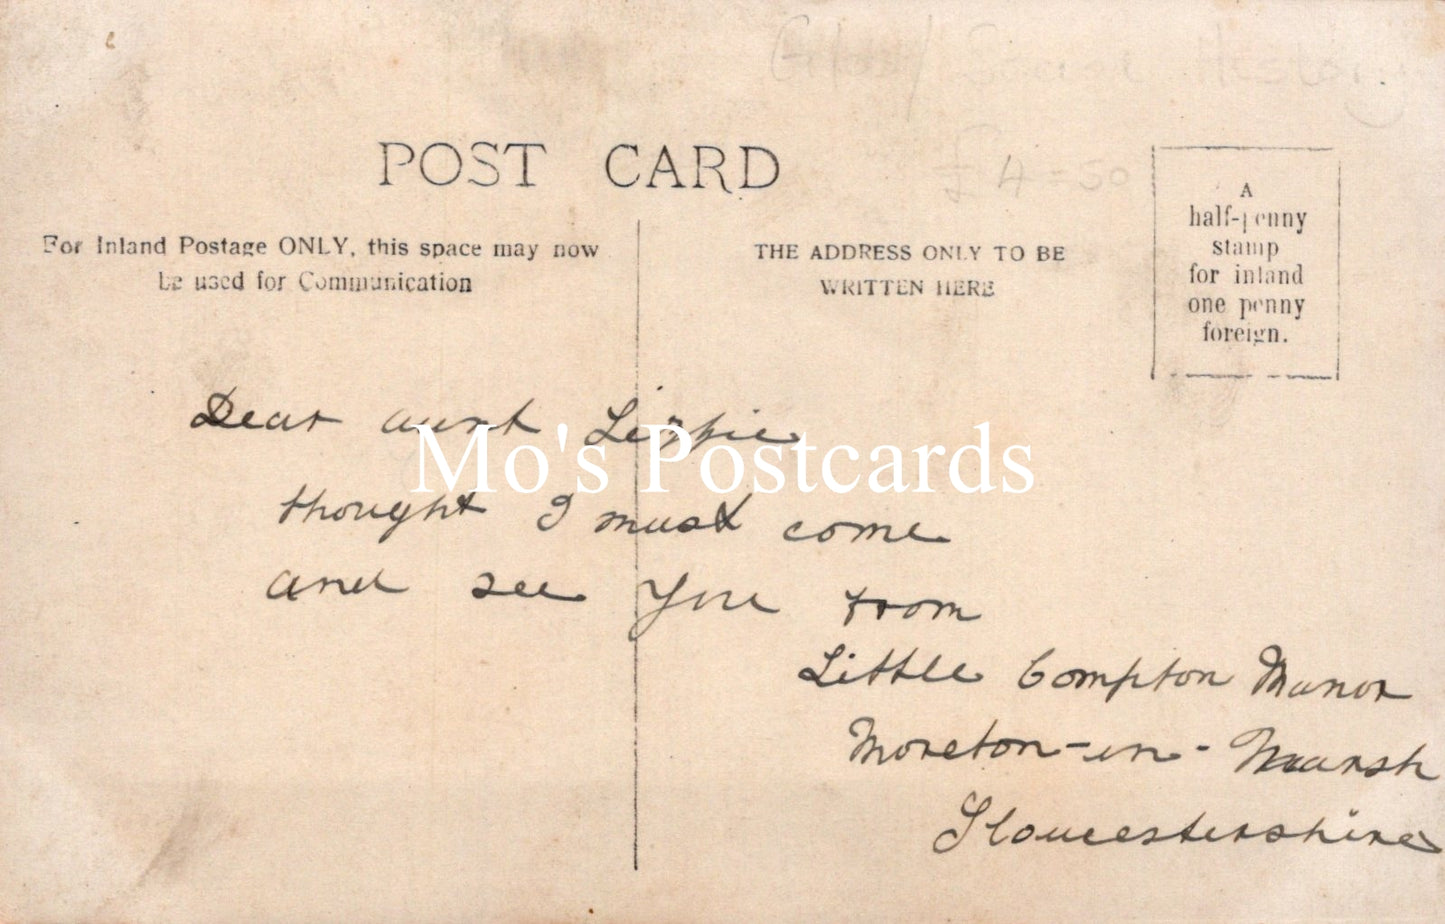 Social History
£4=50
POST CARD
For Inland Postage ONLY, this space may now
be used for Communication
THE ADDRESS ONLY TO BE
WRITTEN HERE
A
half-penny
stamp
for inland
one penny
foreign.
Dear aunt Lizzie
Mo's Postcards
thought I must come
and see you from
Little Compton Manor
Moreton-in-Marsh
Gloucestershire